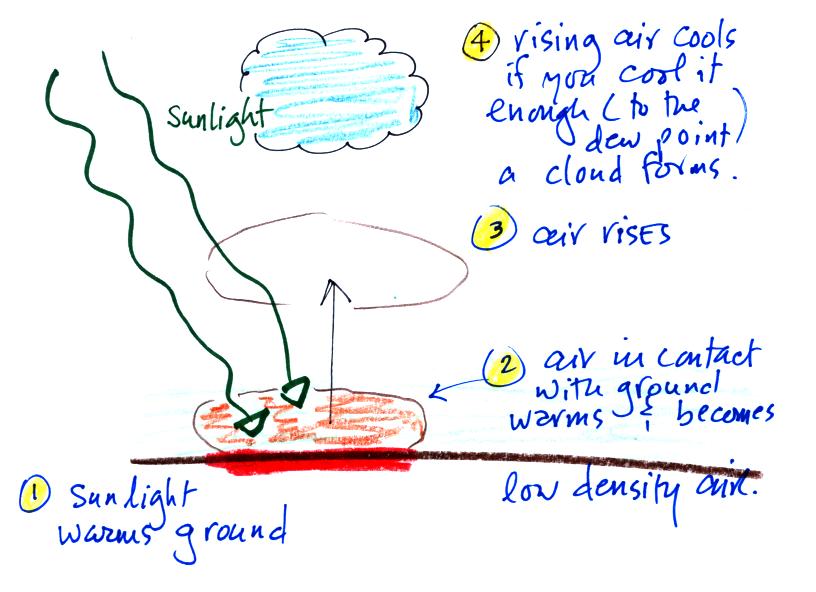 Sunlight
4 rising air cools
if you cool it
enough (to the
dew point)
a cloud forms.
3 air rises
2 air in contact
with ground
warms & becomes
low density air.
1 Sunlight
warms ground